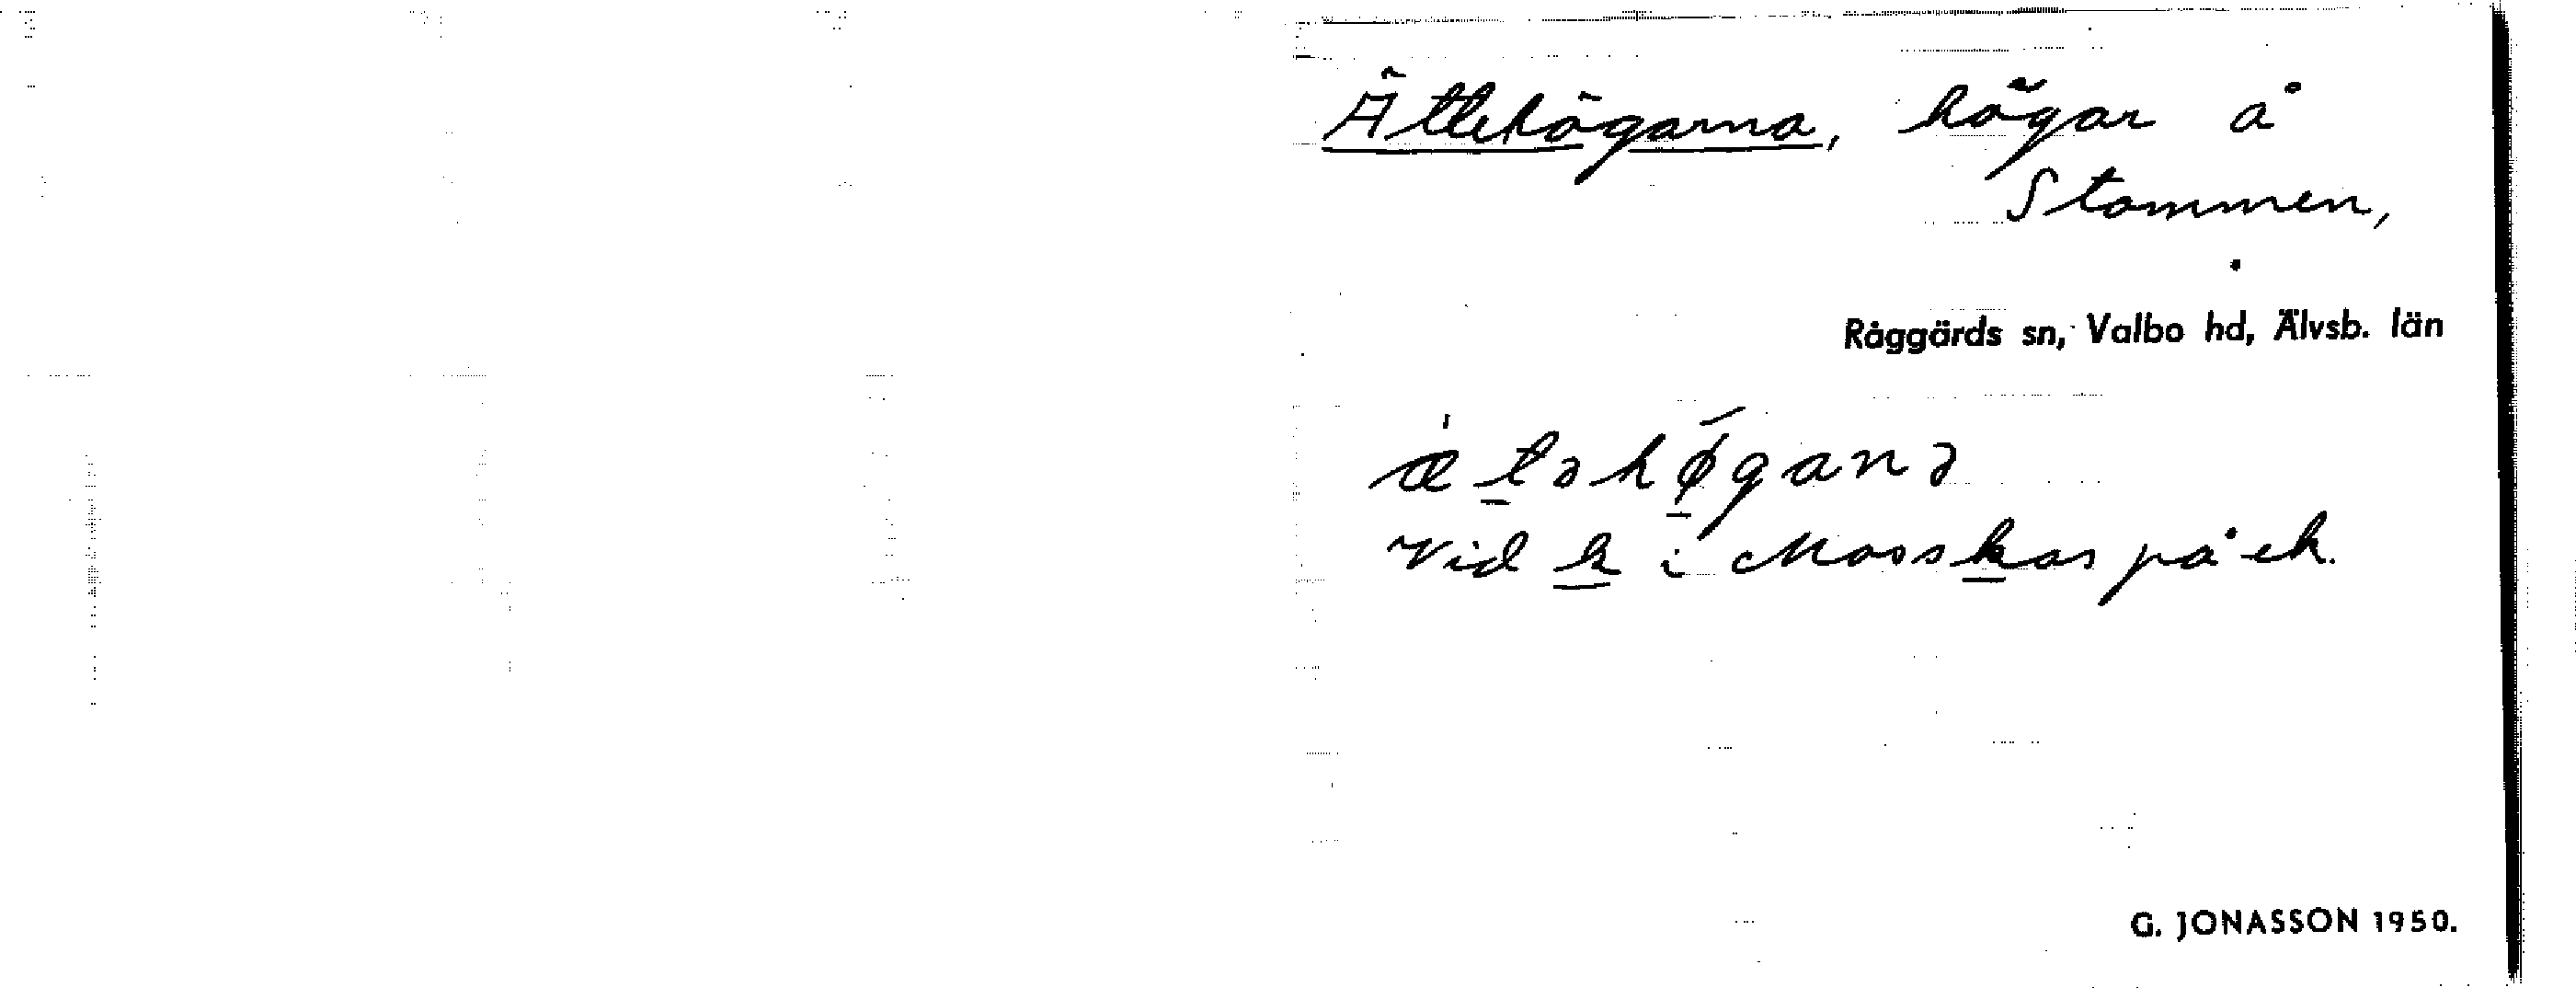 Ättehögarna, högar å
Stommen,
Råggärds sn, Valbo hd, Älvsb. län
æ̀təhǿganə
Vid k i Mosskas på ek.
G. JONASSON 1950.